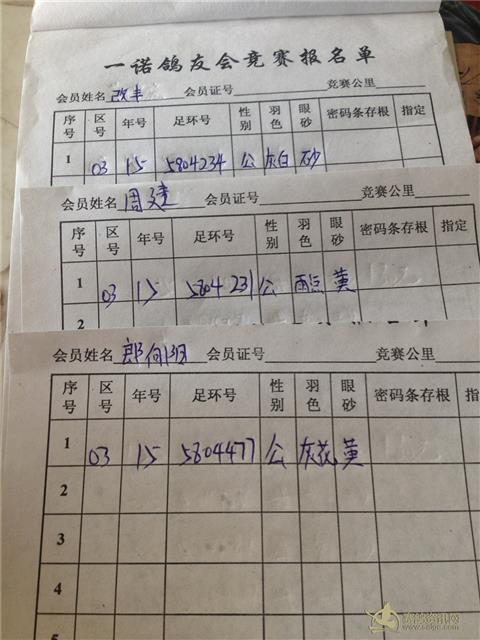 一诺鸽友会竞赛报名单
会员姓名 改丰 会员证号 竞赛公里
序号 区号 年号 足环号 性别 羽色 眼砂 密码条存根 指定
1 03 15 5804234 公 灰白 砂
会员姓名 周建 会员证号 竞赛公里
序号 区号 年号 足环号 性别 羽色 眼砂 密码条存根 指定
1 03 15 5804231 公 雨点 黄
2
会员姓名 郎 会员证号 竞赛公里
序号 区号 年号 足环号 性别 羽色 眼砂 密码条存根 指
1 03 15 5804477 公 灰花 黄
2
3
4
5